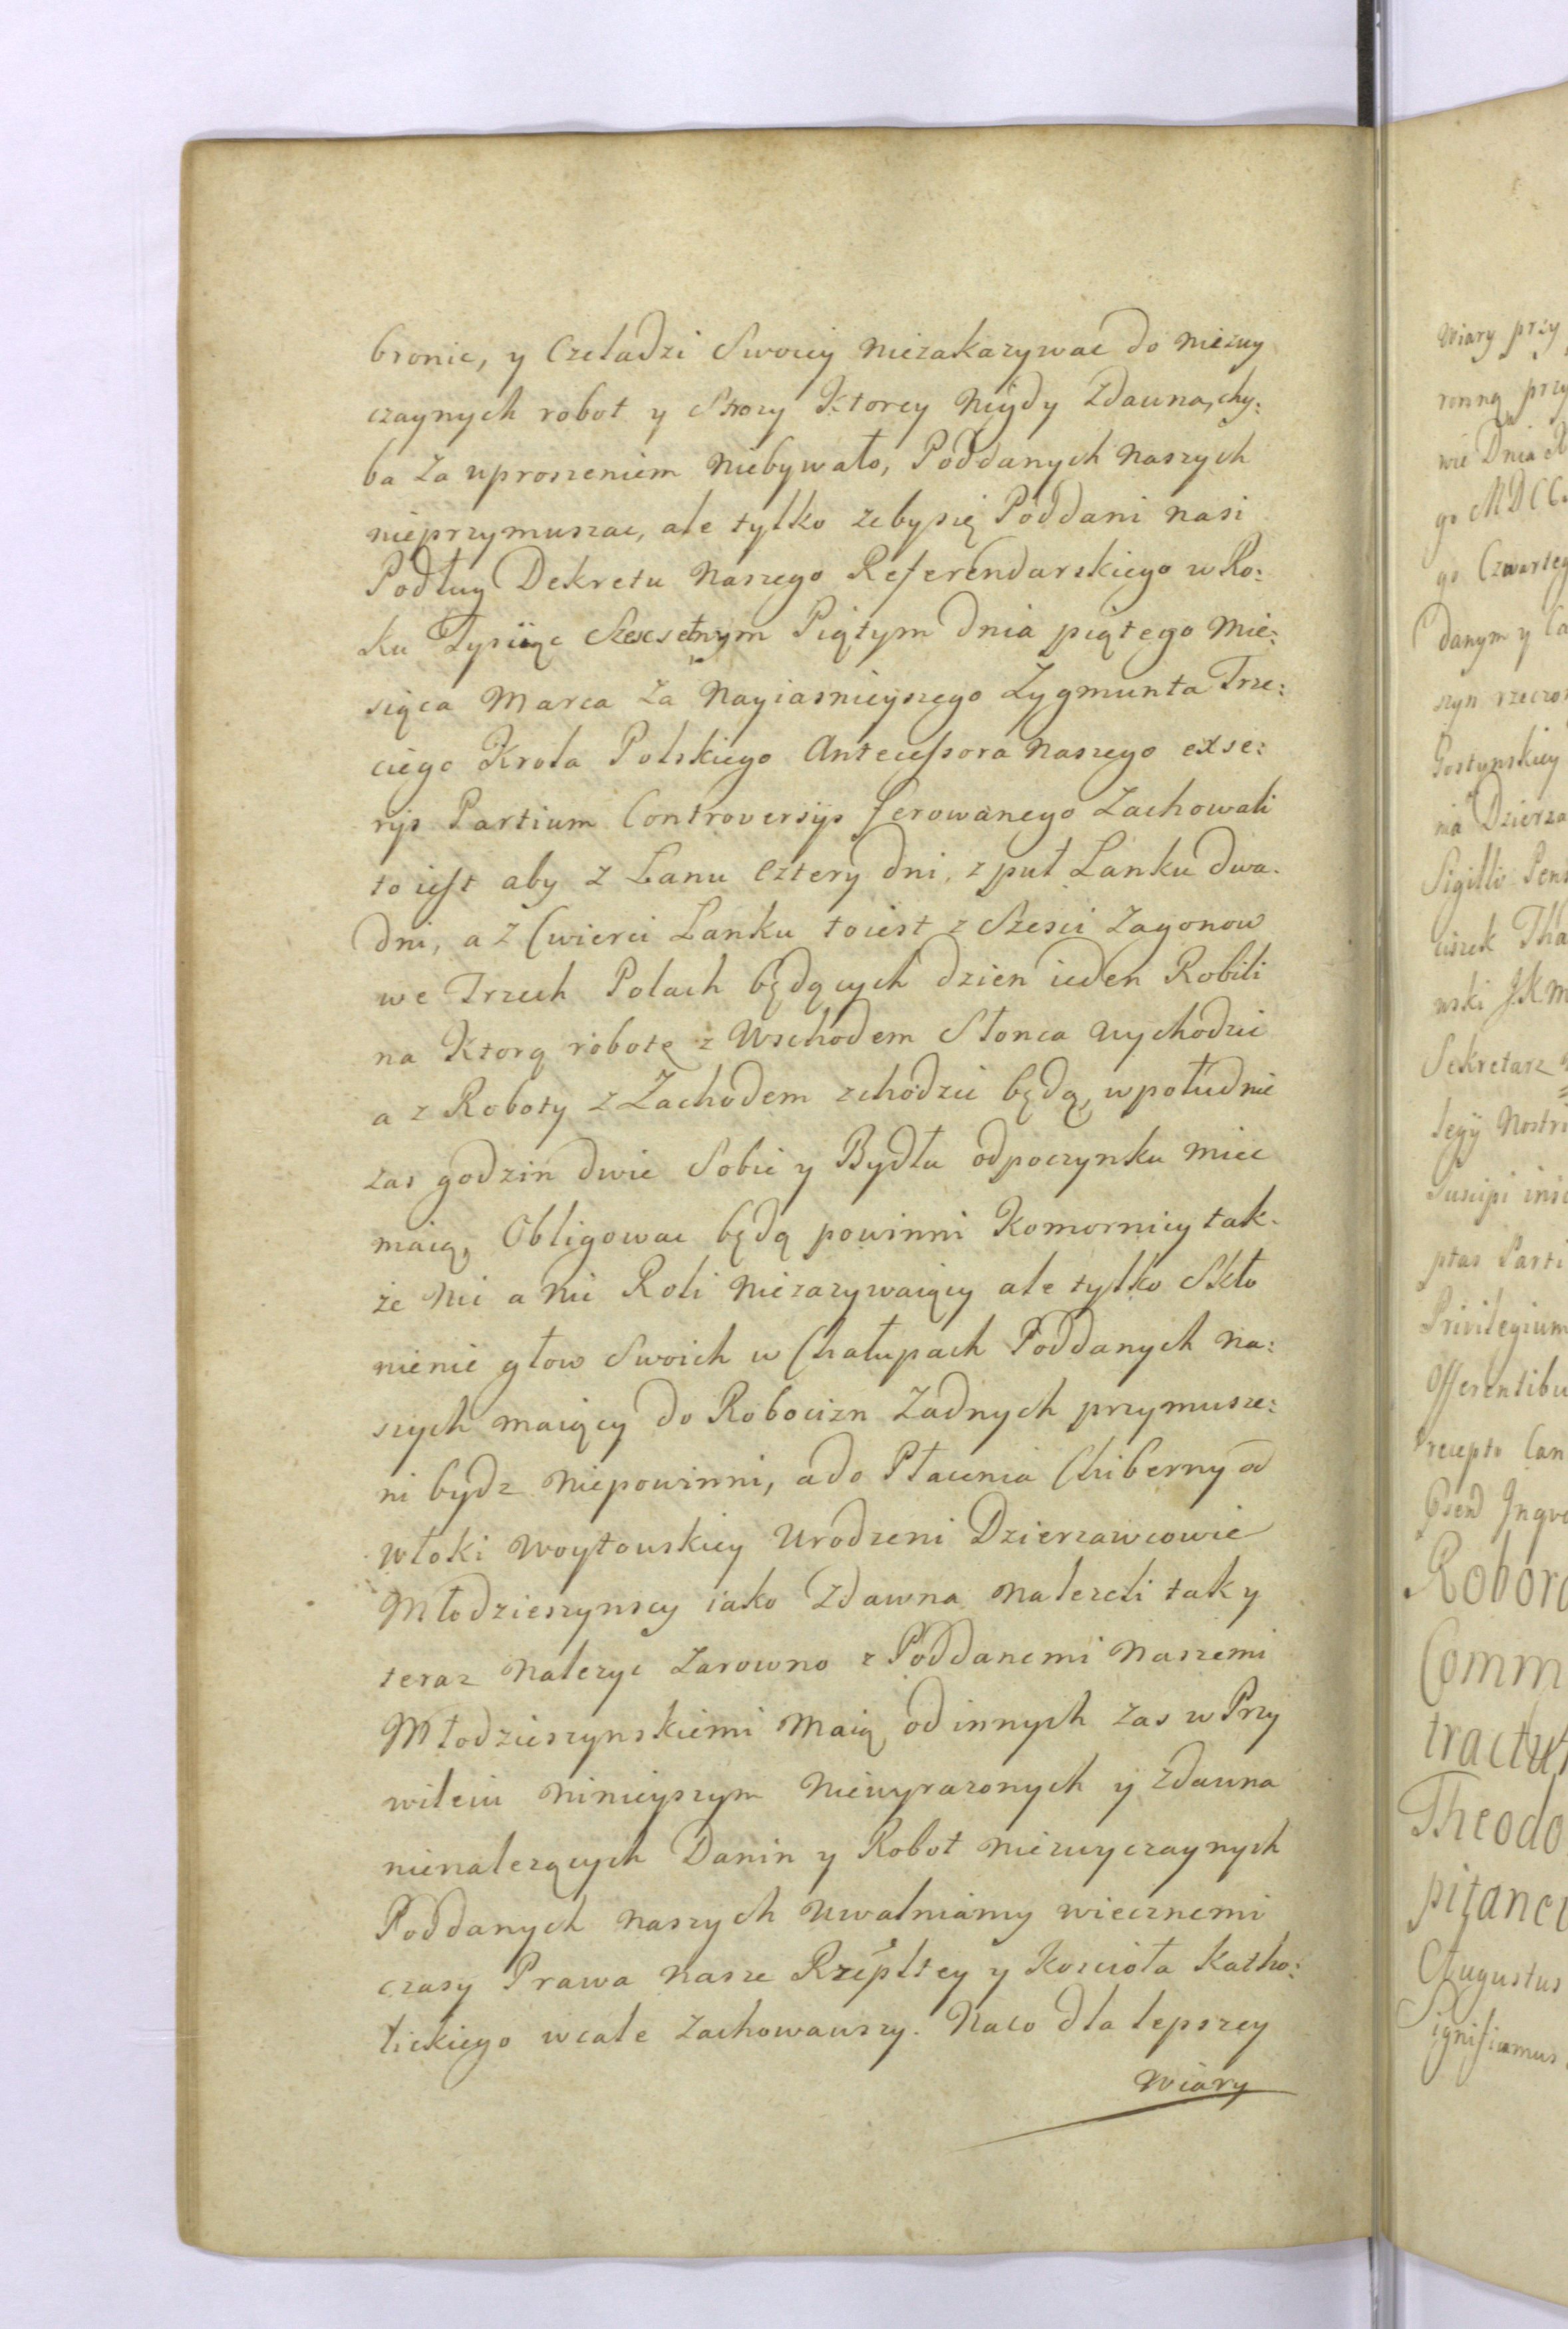 bronic, y Czeladzi Swoiey niezakazywac do niezwy
czaynych robot y Strozy Ktorey nigdy Zdawna, chy:
ba za uproszeniem niebywało, Poddanych naszych
nieprzymuszac, ale tylko zebysię Poddani nasi
Podług Dekretu naszego Referendarskiego w Ro:
ku Tysiąc Szescsetnym Piątym dnia piątego Mie:
siąca Marca za Nayiasnieyszego Zygmunta Trze:
ciego Krola Polskiego Antecessora naszego ex se:
rijs Partium Controversijs ferowanego Zachowali
to iest aby z Łanu Cztery dni, z puł Łanku dwa
dni, a z Cwierci Łanku toiest z Szesci Zagonow
we Trzech Polach będących dzien ieden Robili
na Ktorą robotę z Wschodem Słonca wychodzic
a z Roboty z Zachodem zchodzic będą, w południe
zas godzin dwie Sobie y Bydłu odpoczynku miec
maią, Obligowac będą powinni Komornicy tak-
że nic a nic Roli niezazywaiący ale tylko Skło
nienie głow Swoich w Chałupach Poddanych na:
szych maiący do Robocizn Zadnych przymusze:
ni bydz niepowinni, ado Płacenia Chiberny od
włoki Woytowskiey Urodzeni Dzierzawcowie
Młodzieszynscy iako Zdawna nalezeli tak y
teraz nalezyc Zarowno z Poddanemi Naszemi
Młodzieszynskiemi maią, od innych zas w Przy
wileiu ninieyszym niewyrazonych y zdawna
nienalezących Danin y Robot niezwyczaynych
Poddanych naszych uwalniamy wiecznemi
czasy Prawa nasze Rzeplitey y Koscioła Katho:
lickiego wcale zachowawszy. Naco dla lepszey
Wiary
wiary przy
ronną przy
wie Dnia
go MDCC
go Czwarteg
danym y
szyn rzeczo
Gostynskiey
nia Dzierza
Sigilli Pens
ciszek Tha
wski JKM
Sekretarz
Regij Nostri
Suscipi
ptas Parti
Privilegium
Offerentibu
recepto Can

Robora
Comm
tractu
Theodo
pitane
Augustus
ignificamus